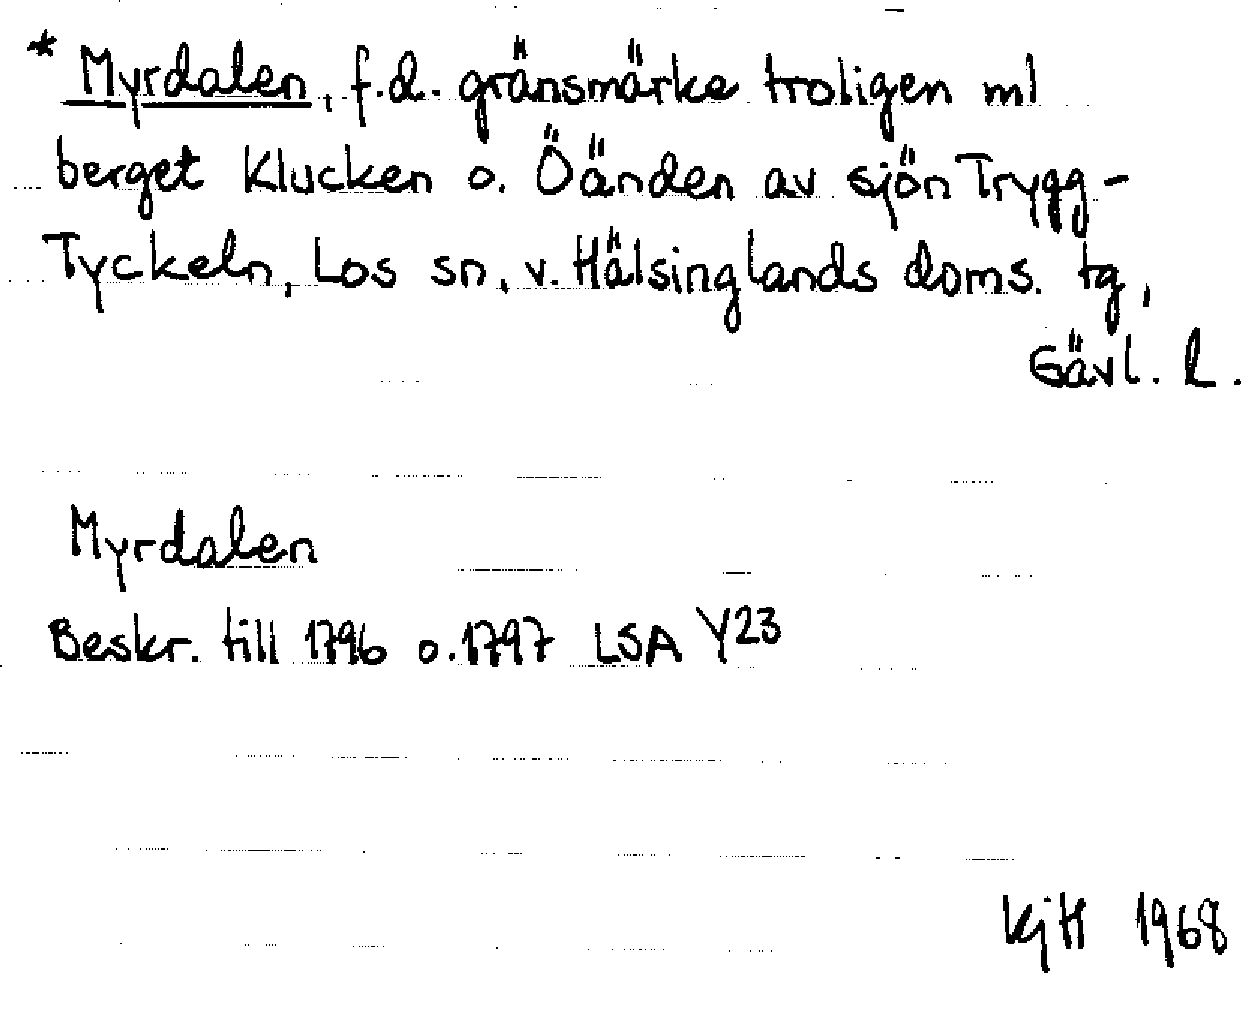 * Myrdalen, f.d. gränsmärke troligen ml
berget Klucken o. Öänden av sjön Trygg-
Tyckeln, Los sn, v. Hälsinglands doms. tg,
Gävl. l.
Myrdalen
Beskr. till 1796 o. 1797 LSA Y23
KjH 1968